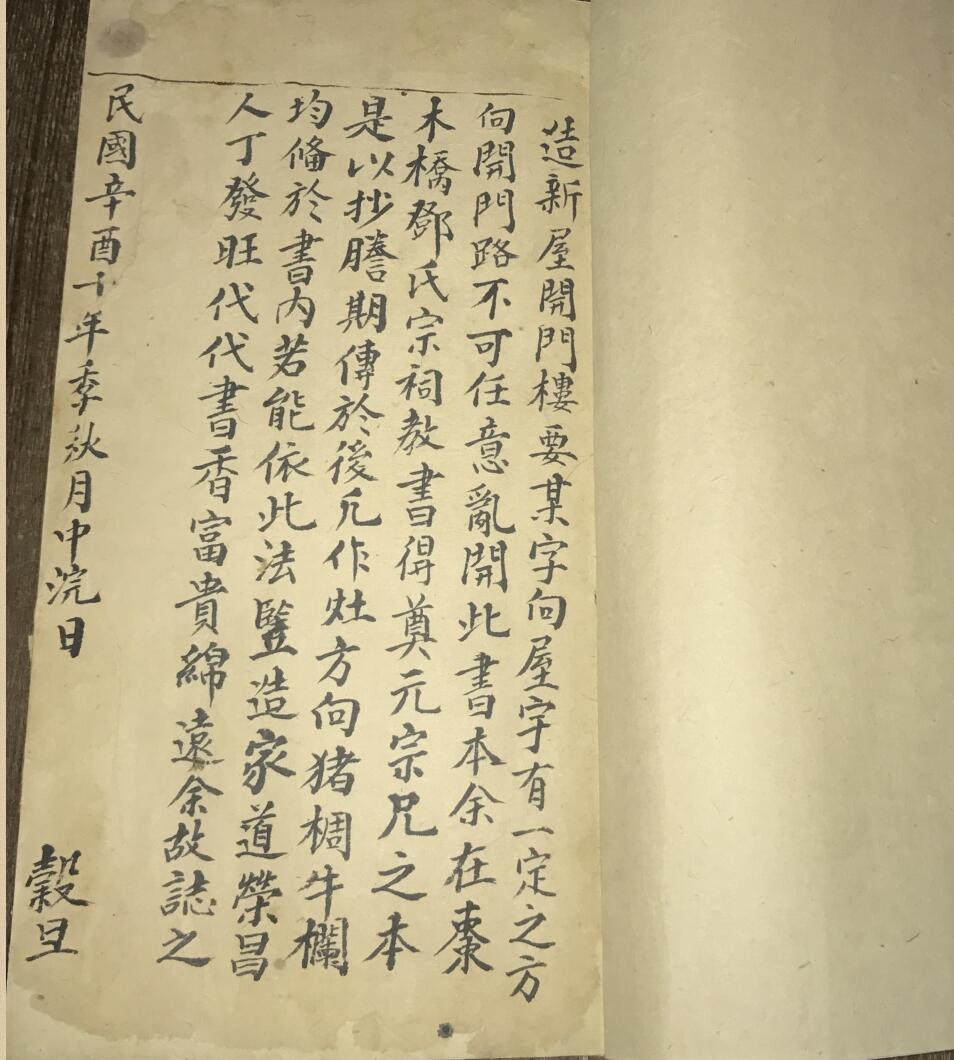 造新屋開門樓要某字向屋字有一定之方
向開門路不可任意亂開此書本余在棗
木橋鄧氏宗祠教書得奠元宗兄之本
是以抄謄期傳於後凡作灶方向猪椆牛欄
均俻於書内若能依此法豎造家道榮昌
人丁發旺代代書香富貴綿遠余故誌之
民國辛酉十年季秋月中浣日 穀旦